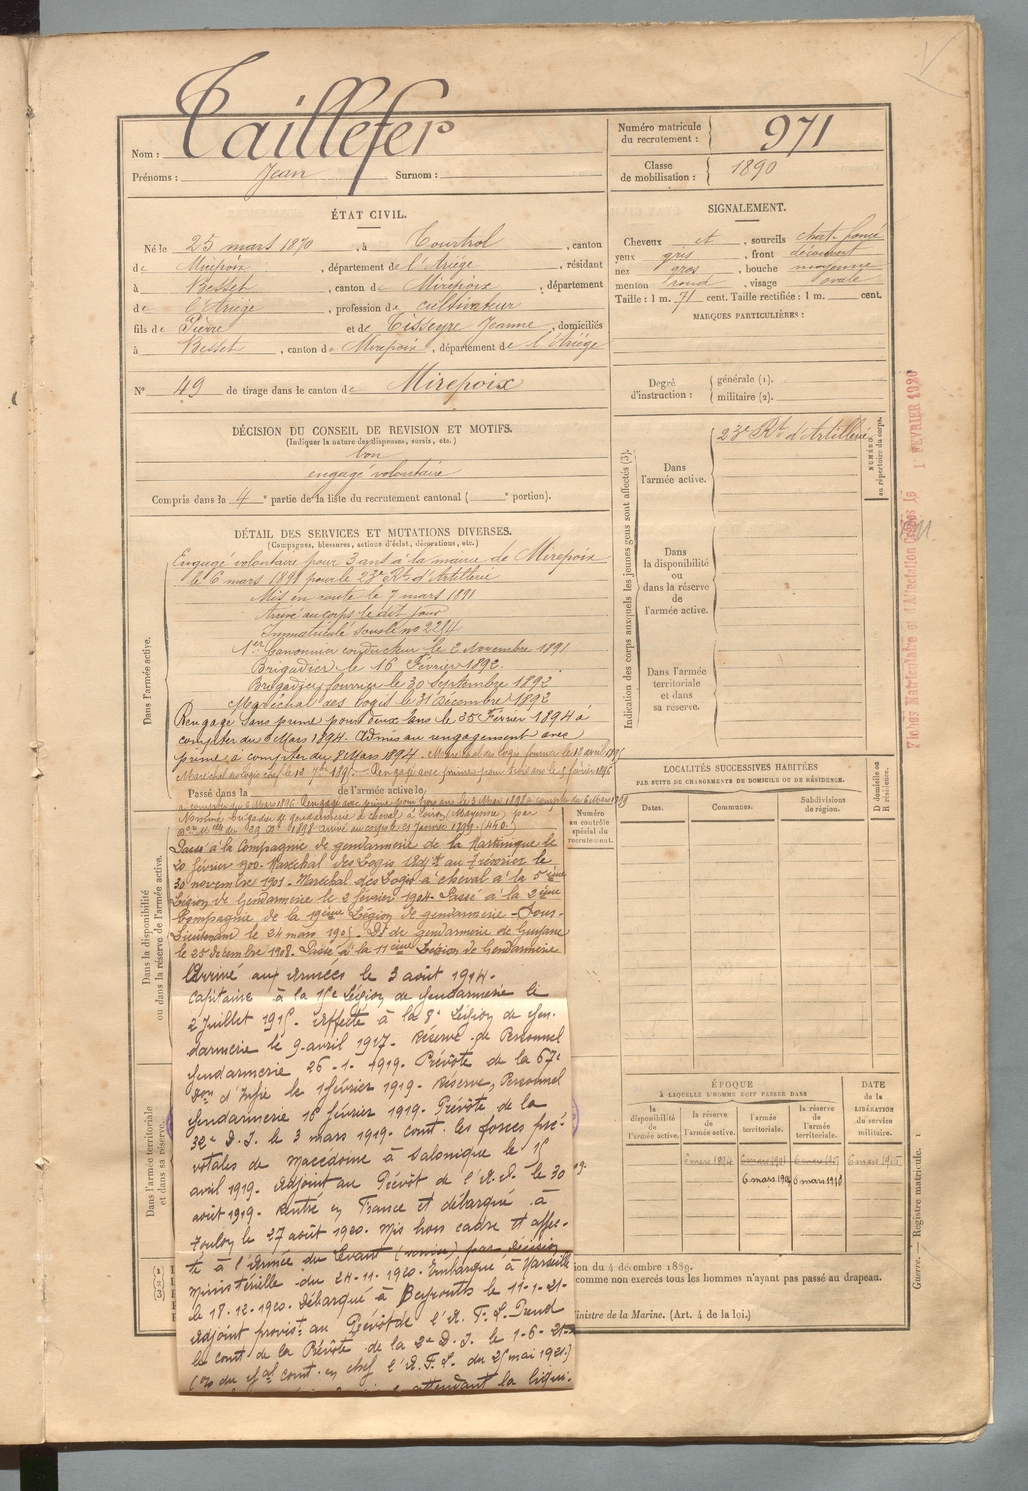 Nom : Taillefer
Prénoms : Jean Surnom :
Numéro matricule du recrutement : 971
Classe de mobilisation : 1890
ÉTAT CIVIL.
Né le 25 mars 1870, à Tourtrol, canton
de Mirepoix, département de l'Ariège, résidant
à Besset, canton de Mirepoix, département
de l'Ariège, profession de cultivateur
fils de Pierre et de Tisseyre Jeanne, domiciliés
à Besset, canton de Mirepoix, département de l'Ariège
N° 49 de tirage dans le canton de Mirepoix
SIGNALEMENT.
Cheveux et, sourcils chat. foncé
yeux gris, front découvert
nez gros, bouche moyenne
menton rond, visage ovale
Taille : 1 m. 71 cent. Taille rectifiée : 1 m. cent.
MARQUES PARTICULIÈRES :
Degré d'instruction : générale (1).
militaire (2).
DÉCISION DU CONSEIL DE REVISION ET MOTIFS.
(Indiquer la nature des dispenses, sursis, etc.)
bon
engagé volontaire
Compris dans la 4e partie de la liste du recrutement cantonal ( e portion).
DÉTAIL DES SERVICES ET MUTATIONS DIVERSES.
(Campagnes, blessures, actions d'éclat, décorations, etc.)
Dans l'armée active.
Engagé volontaire pour 3 ans à la mairie de Mirepoix
le 6 mars 1891 pour le 23e Rt d'Artillerie
Mis en route le 7 mars 1891
Arrivé au corps le dit jour
Immatriculé sous le no 2214
1er Canonnier conducteur le 2 Novembre 1891
Brigadier le 16 Février 1892.
Brigadier fourrier le 30 Septembre 1892
Maréchal des logis le 31 Décembre 1892
Rengagé sans prime pour deux ans le 25 Février 1894 à
compter du 6 Mars 1894. Admis au rengagement avec
prime, à compter du 8 Mars 1894. Maréchal des logis fourrier le 12 avril
Maréchal des logis chef le 13 7bre 1895 Rengagé avec prime pour trois ans le 5 février 1896
Passé dans la de l'armée active le
à compter du 6 Mars 1896. Rengagé avec prime pour trois ans le 3 Mars 1898 à compter du 6 Mars 1899
Nommé brigadier de gendarmerie à cheval à (Mayenne) par
1898 arrivé au corps le 21 Janvier 1899.
Passé à la Compagnie de gendarmerie de la Martinique le
20 février 1900. Maréchal des Logis
30 novembre 1901 - Maréchal des Logis à cheval à la 5ème
Légion de Gendarmerie le 2 février 1904. Passé à la 2ème
Compagnie de la 19ème Légion de gendarmerie - Sous-
Lieutenant le 24 mars 1905. Dt de Gendarmerie de Guyane
le 25 décembre 1908. Passé à la 11ème Légion de Gendarmerie
Dans la disponibilité ou dans la réserve de l'armée active.
Arrivé aux Armées le 3 août 1914.
Capitaine à la Légion de Gendarmerie le
2 Juillet 1915. Affecté à la 8e Légion de Gen-
darmerie le 9 avril 1917. Réserve de Personnel
Gendarmerie 26-1-1919. Prévôté de la 67e
Don d'Infie le 1 février 1919. Réserve, Personnel
Gendarmerie 16 février 1919. Prévôté de la
32e D.I. le 3 mars 1919. Comt. les forces pré-
vôtales de Macédoine à Salonique le 15
avril 1919. Adjoint au Prévôt de l'A.O. le 30
août 1919. Rentré en France et débarqué à
Toulon le 27 août 1920. Mis hors cadre et affec-
té à l'Armée du Levant (service) par décision
ministérielle du 24-11-1920. Embarqué à Marseille
le 18-12-1920. Débarqué à Beyrouth le 11-1-21.
Adjoint provist. au Prévôt de l'A.F.L. Prend
le comt de la Prévôté de la 2e D.I. le 1-6-21
du Gal comt. en chef l'A.F.L. du 25 mai 1921.)
attendant la liqui-
Dans l'armée territoriale et dans sa réserve.
Indication des corps auxquels les jeunes gens sont affectés (3).
Dans l'armée active.
23e Rt d'Artillerie
NUMÉRO au répertoire du corps.
Dans la disponibilité ou dans la réserve de l'armée active.
Dans l'armée territoriale et dans sa réserve.
Numéro au contrôle spécial du recrutement.
LOCALITÉS SUCCESSIVES HABITÉES
PAR SUITE DE CHANGEMENTS DE DOMICILE OU DE RÉSIDENCE.
Dates. Communes. Subdivisions de région. D domicile ou R résidence.
ÉPOQUE
À LAQUELLE L'HOMME DOIT PASSER DANS
la disponibilité de l'armée active. la réserve de l'armée active. l'armée territoriale. la réserve de l'armée territoriale.
DATE de la LIBÉRATION du service militaire.
6 mars 1894 6 mars 1901 6 mars 1907 6 mars 1915
6 mars 1904 6 mars 1910
ion du 4 décembre 1889.
comme non exercés tous les hommes n'ayant pas passé au drapeau.
inistre de la Marine. (Art. 4 de la loi.)
(1)
(2)
(3)
Guerre. — Registre matricule. 1
Fiches Matriculaire et d'Affectation créées le 1 FEVRIER 1920